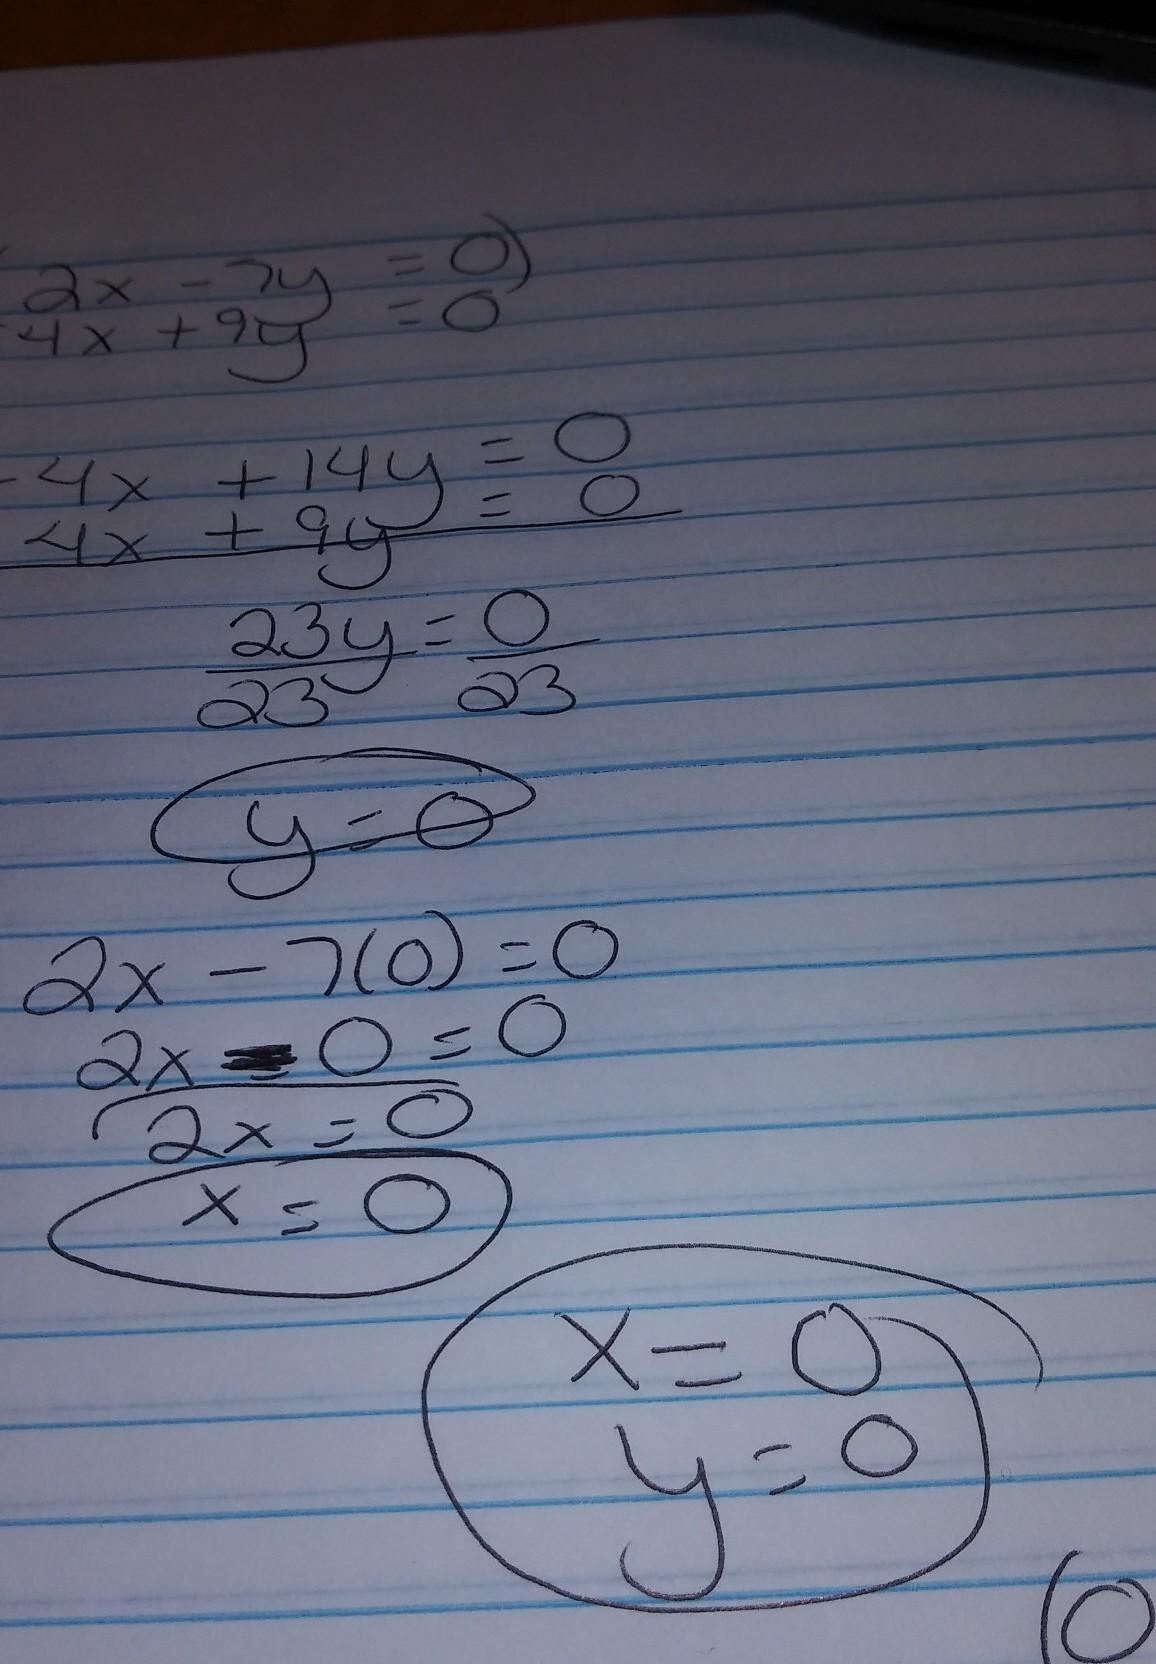 2x - 7y = 0)
4x + 9y = 0
-4x + 14y = 0
4x + 9y = 0
23y = 0
23 23
y = 0
2x - 7(0) = 0
2x - 0 = 0
2x = 0
x = 0
x = 0
y = 0
(0